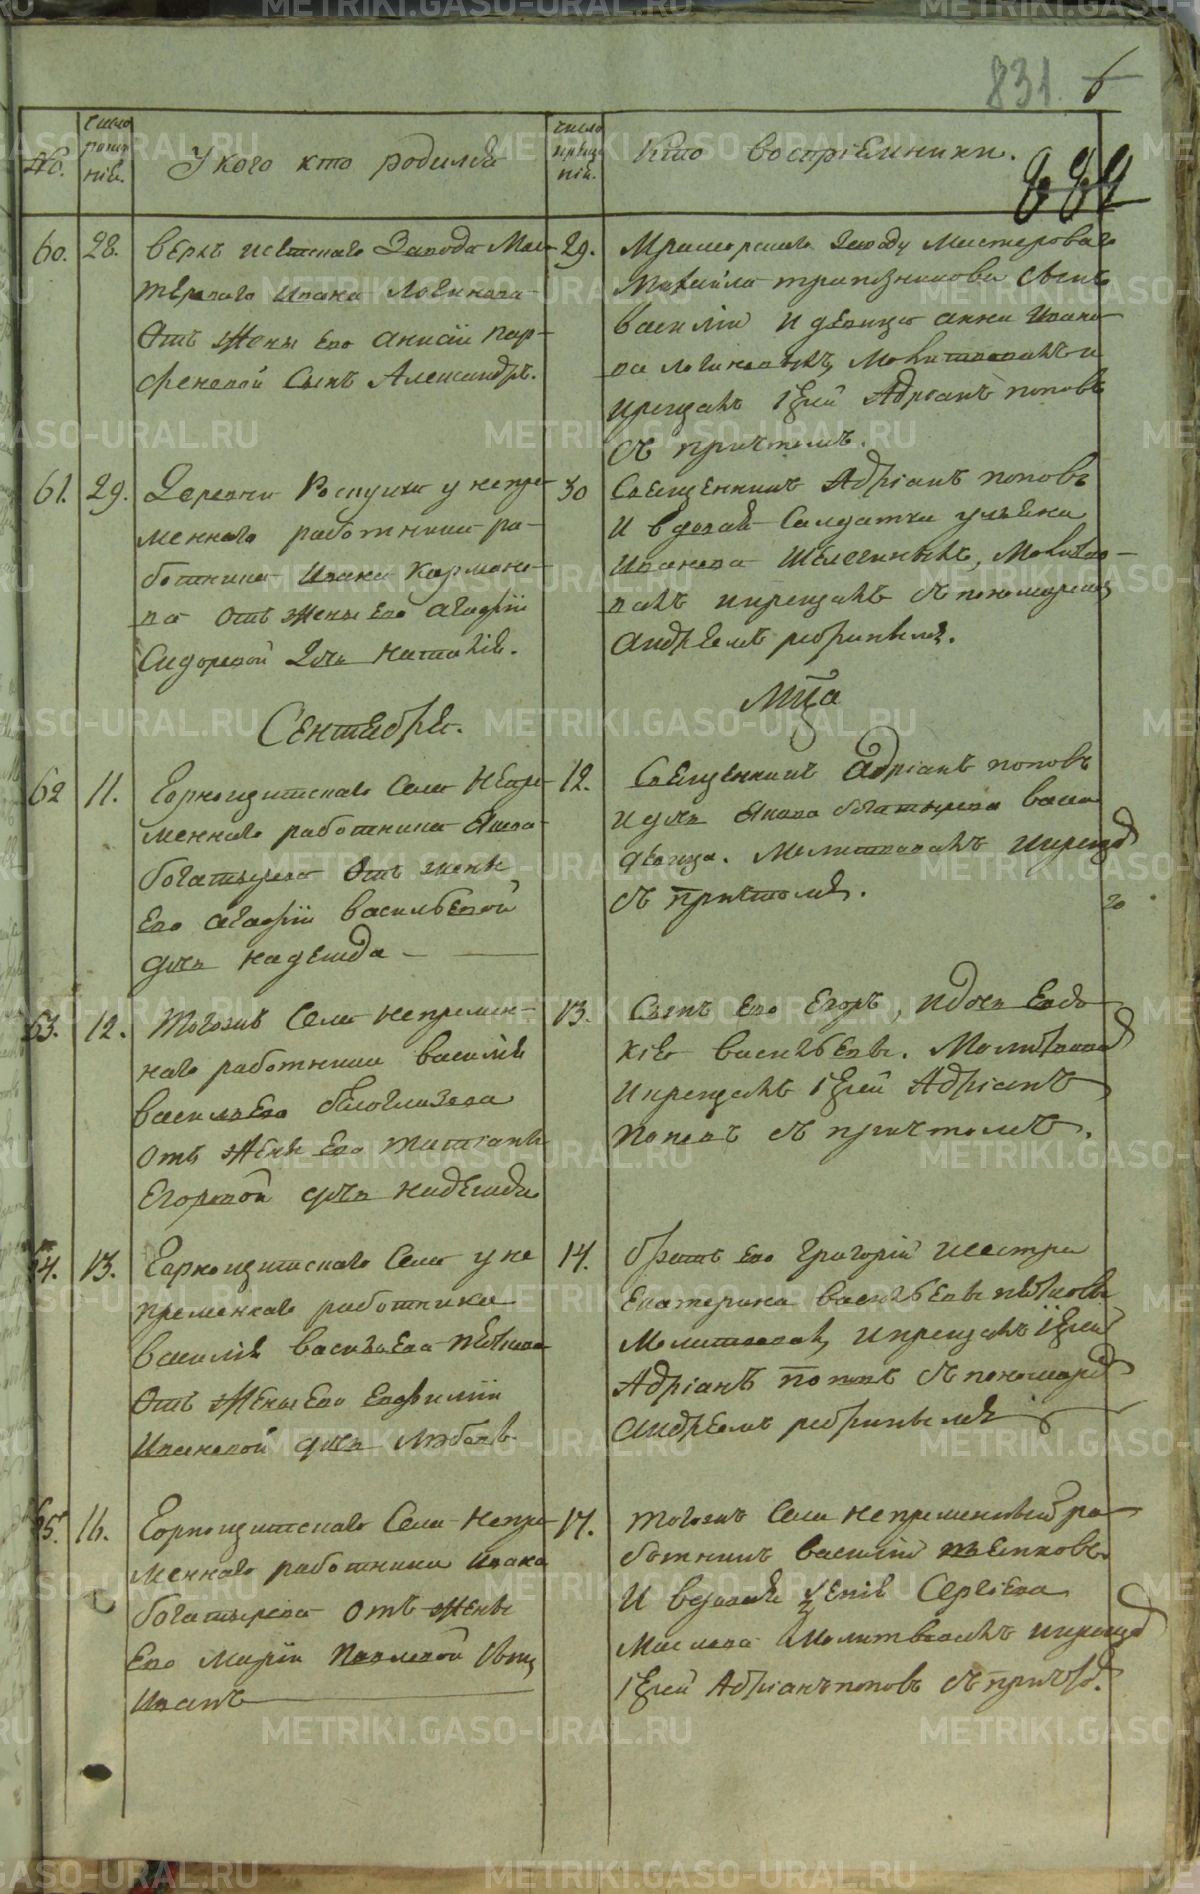 831
6
884
No.
Число рожде нія.
У кого кто родился
Число креще нія.
Кто восприемники.
60.
28.
Верхъ исетскаго Завода Мас
тероваго Ивана Логинова
Отъ Жены Его Анисіи Пар-
феновой Сынъ Александръ.
29.
Мраморскаго Заводу Мастероваго
Михайла трапезникова Сынъ
Василій И девица анна Ивано
ва логиновыхъ, Молитвовалъ и
крещалъ іерей Адріанъ поповъ
Съ причтомъ.
61.
29.
Деревни Роспухи у непре
меннаго работника ра-
ботника Ивана Кормано-
ва Отъ Жены Его Агафіи
Сидоровой Дочь Наталія.
30
Священникъ Адріанъ поповъ
И вдовая Салдатка ульяна
Иванова Шелегиныхъ, Молитво-
валъ икрещалъ Съ пономаремъ
Андреемъ ребринымъ.
Мца
Сентября.
62
11.
Горнощитскаго Села Непре
меннаго работника Якова
богатырева Отъ жены
Его Агафіи Васильевой
дочь Надежда
12.
Священникъ Адріанъ поповъ
и дочь Якова богатырева
девица. Молитвовалъ Икрещалъ
Съ причтомъ.
63.
12.
Тогожъ Села Непремен-
наго работника Василія
Васильева белоглазова
Отъ Жены Его Татіаны
Егоровой дочь Надежда
13.
Сынъ Его Егоръ, Идочь Евдо
кія Васильевы. Молитвовалъ
Икрещалъ іерей Адріанъ
Поповъ Съ причтомъ.
64.
13.
Горнощитскаго Села у не
пременнаго работника
Василія Васильева
Отъ Жены Его Евфиміи
Ивановой дочь Любовь
14.
братъ Его Григорій исестра
Екатерина Васильевы
Молитвовалъ, Икрещалъ іерей
Адріанъ поповъ Съ пономаремъ
Андреемъ ребринымъ
65.
16.
Горнощитскаго Села Непре
меннаго работника Ивана
богатырева Отъ Жены
Его Маріи Павловой Сынъ
Иванъ
17.
Тогожъ Села непременный ра
ботникъ Василій
И вдовая Ксенія Сергіева
Маслова Молитвовалъ икрещалъ
іерей Адріанъ поповъ Съ причтомъ.
METRIKI.GASO-URAL.RU